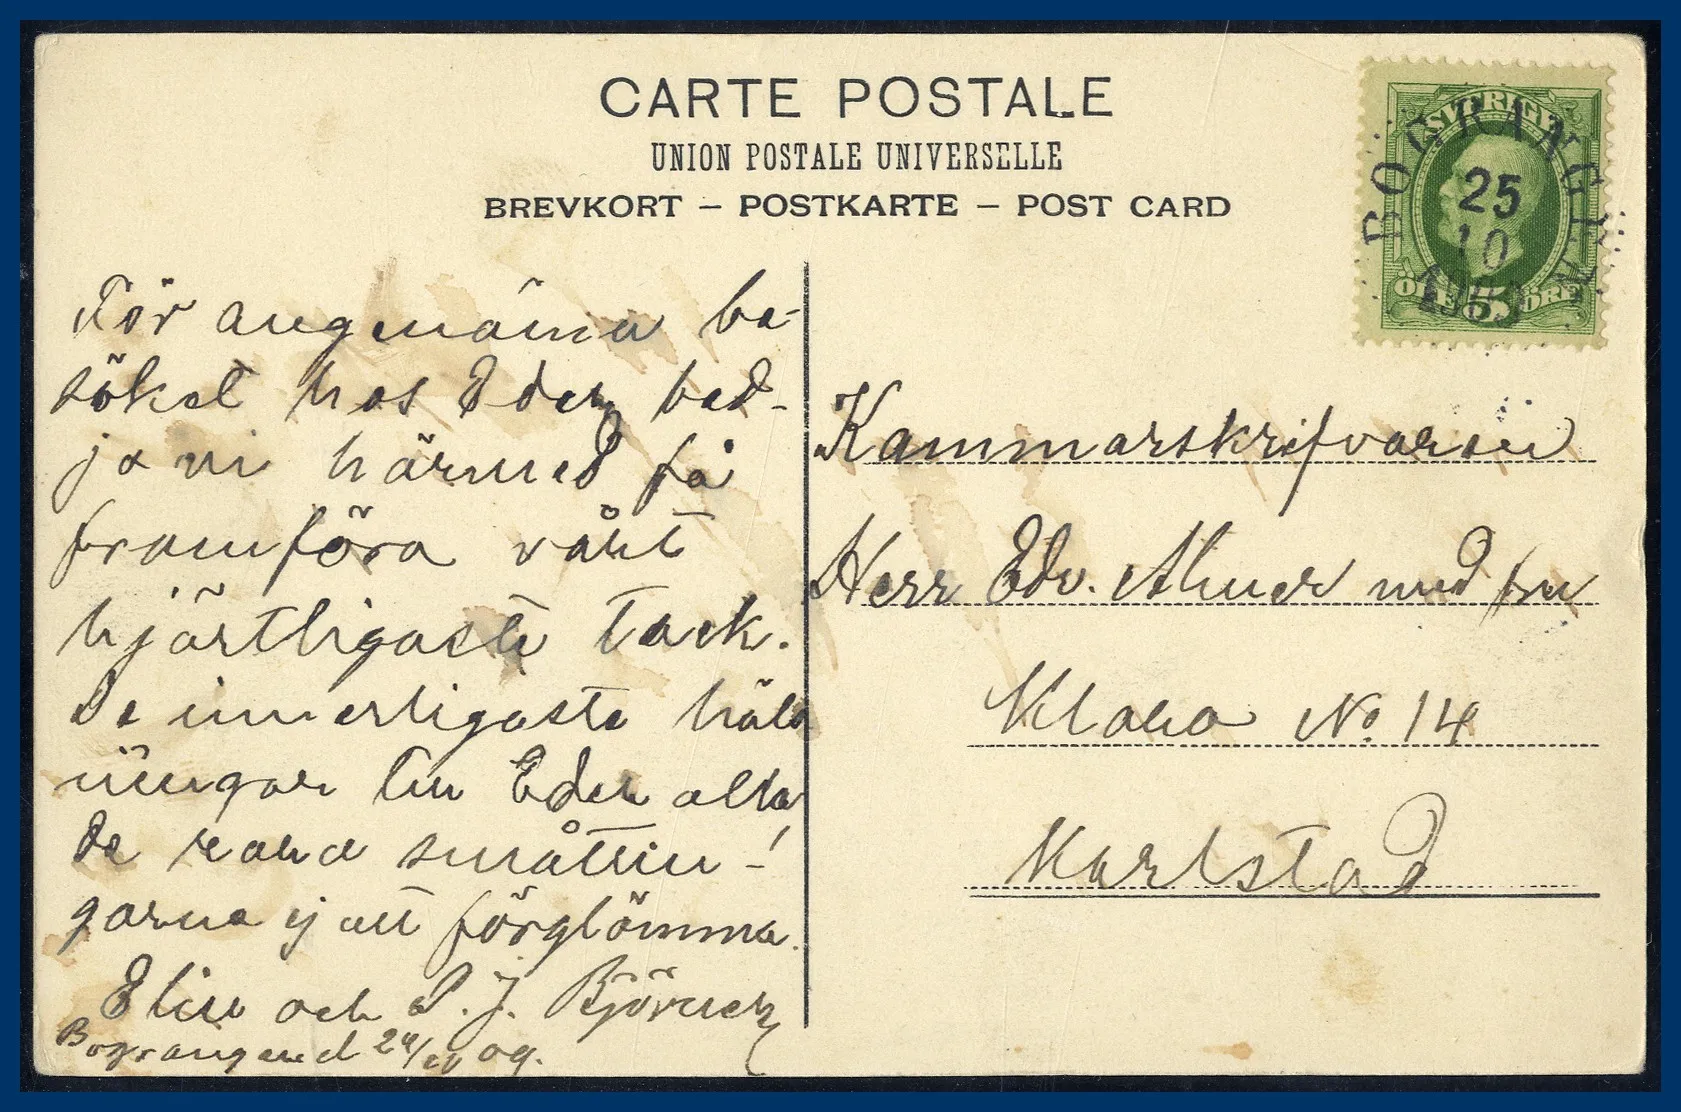 CARTE POSTALE
UNION POSTALE UNIVERSELLE
BREVKORT – POSTKARTE – POST CARD
SVERIGE
BOGRANGEN
25
10
ÖRE 5 ÖRE
För angenäma be-
söket hos Eder bed-
ja vi härmed få
framföra vårt
hjärtligaste tack.
De innerligaste häls
ningar till Eder alla
de rara småttin-
garna ej att förglömma.
Elin och P. J. Björner
Bograngen d 24/10 09.
Kammarskrifvaren
Herr Edv. Almer med fru
Klara No 14
Karlstad